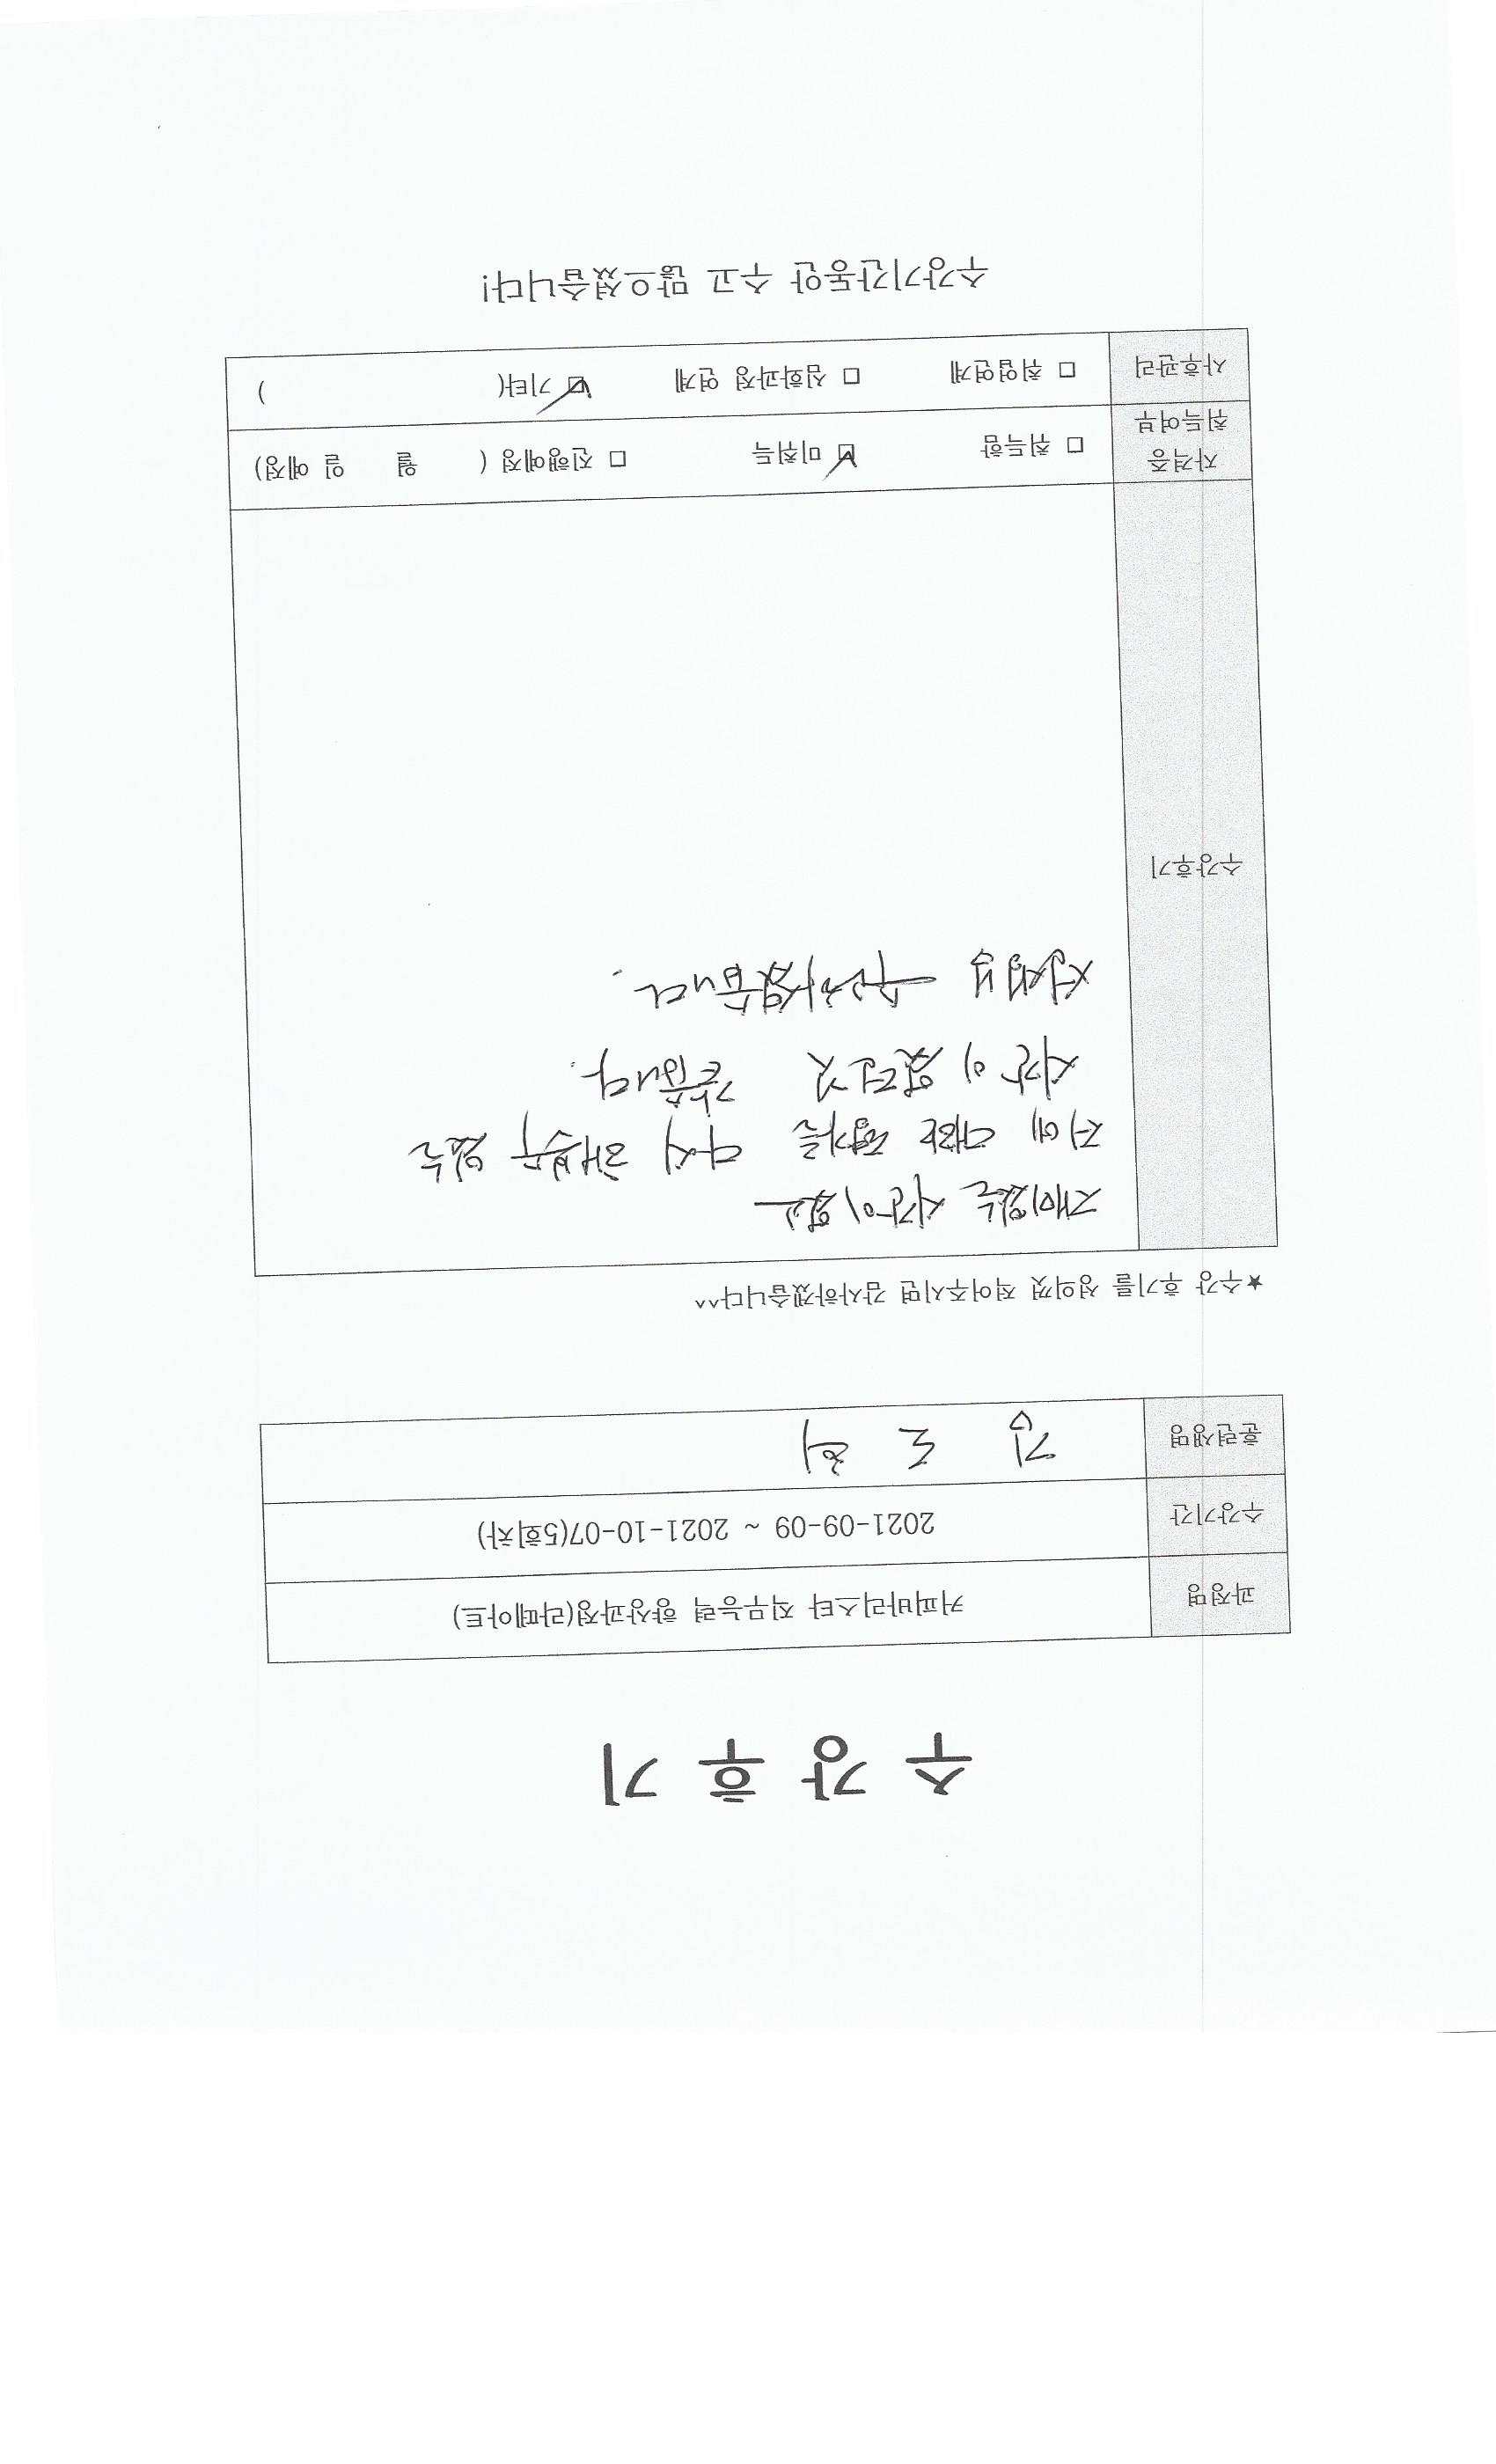 수 강 후 기
과정명 커피바리스타 직무능력 향상과정(라떼아트)
수강기간 2021-09-09 ~ 2021-10-07(5회차)
훈련생명 김 도
★수강 후기를 성의껏 적어주시면 감사하겠습니다^^
수강후기
재미있는 시간이 였고
저에 대한 다시 해볼수 있는
시간이 였던것 같습니다.
선생님 수고하셨습니다.
자격증 취득여부 □ 취득함 ☑ 미취득 □ 진행예정 ( 월 일 예정)
사후관리 □ 취업연계 □ 심화과정 연계 ☑ 기타( )
수강기간동안 수고 많으셨습니다!